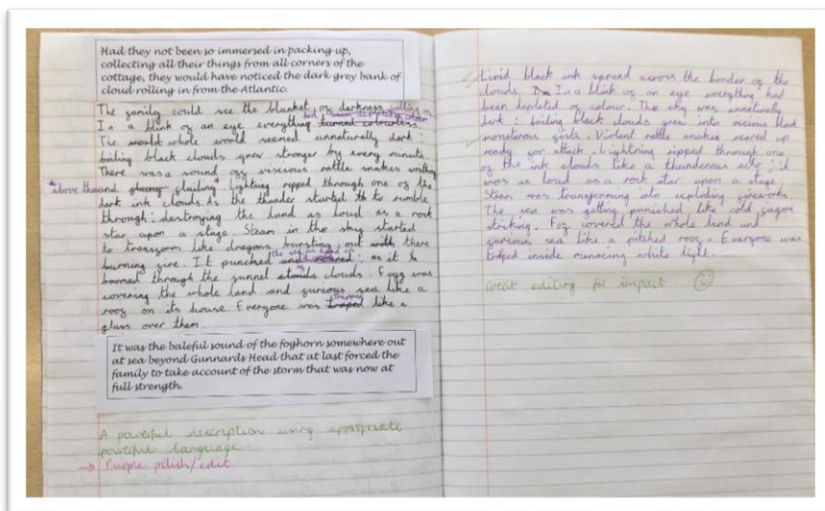 Had they not been so immersed in packing up,
collecting all their things from all corners of the
cottage, they would have noticed the dark grey bank of
cloud rolling in from the Atlantic.
The family could see the blanket of darkness
In a blink of an eye everything had been turned colourless.
The world whole would seemed unnaturally dark:
boiling black clouds grew stronger by every minute.
There was a sound of viscious rattle snakes
above them and gliding. Lightning ripped through one of the
dark ink clouds. As the thunder started to rumble
through: destroying the land as loud as a rock
star upon a stage. Steam in the sky started
to transform like dragons bursting out with there
burning fire. It punched and as it
boomed through the funnel clouds. Fogg was
covering the whole land and furious sea like a
roof on its house. Everyone was traped like a
glass over them.
It was the baleful sound of the foghorn somewhere out
at sea beyond Gunnards Head that at last forced the
family to take account of the storm that was now at
full strength.
A powerful description using appropriate
powerful language.
→ Purple polish/edit
Livid black ink spread across the border of the
clouds. In a blink of an eye everything had
been depleted of colour. The sky was unnaturally
dark: boiling black clouds grew into vicious
monsterous. Violent rattle snakes reared up
ready for attack. Lightning ripped through one
of the ink clouds like a thunderous; it
was as loud as a rock star upon a stage.
Steam was transforming into exploding fireworks.
The sea was getting punished like cold
striking. Fog covered the whole land and
furious sea like a pitched roof. Everyone was
Edged inside menacing white light.
Great editing for impact